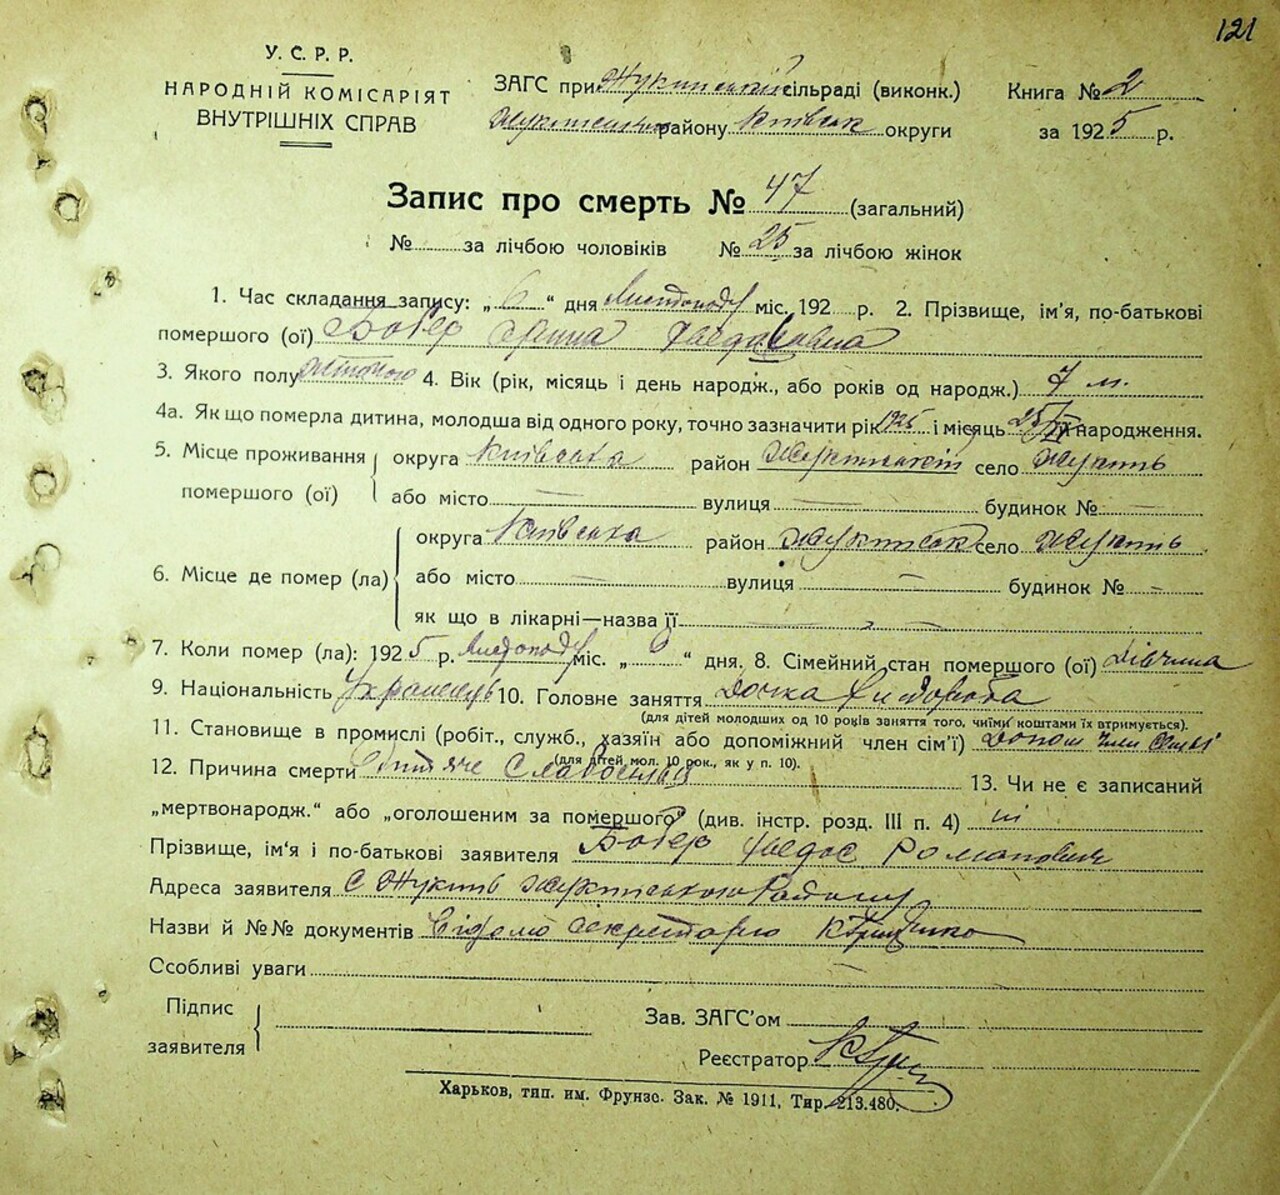 121
У. С. Р. Р.
НАРОДНІЙ КОМІСАРІЯТ
ВНУТРІШНІХ СПРАВ
ЗАГС при Жукинській сільраді (виконк.)
району Київськ округи
Книга № 2
за 1925 р.
Запис про смерть № 47 (загальний)
№ за лічбою чоловіків № 25 за лічбою жінок
1. Час складання запису: „6“ дня Листопаду міс. 192 р. 2. Прізвище, ім'я, по-батькові
помершого (ої) Бобер
3. Якого полу жіночого 4. Вік (рік, місяць і день народж., або років од народж.) 7 м.
4а. Як що померла дитина, молодша від одного року, точно зазначити рік 1925 і місяць народження.
5. Місце проживання помершого (ої) округа Київська район Жукинський село Жукинь
або місто — вулиця — будинок № —
6. Місце де помер (ла) округа Київська район Жукинськ село Жукинь
або місто — вулиця — будинок № —
як що в лікарні—назва її
7. Коли помер (ла): 1925 р. Листопаду міс. „6“ дня. 8. Сімейний стан помершого (ої) дівчина
9. Національність 10. Головне заняття Дочка Хлібороба
(для дітей молодших од 10 років заняття того, чиїми коштами їх втримується).
11. Становище в промислі (робіт., служб., хазяїн або допоміжний член сім'ї) Допом член сім'ї
(для дітей мол. 10 рок., як у п. 10).
12. Причина смерти Дитяче 13. Чи не є записаний
„мертвонародж.“ або „оголошеним за помершого“ (див. інстр. розд. III п. 4) ні
Прізвище, ім'я і по-батькові заявителя Бобер Федос Романович
Адреса заявителя с Жукинь Жукинського Району
Назви й №№ документів Відомо секретарю
Особливі уваги —
Підпис
заявителя
Зав. ЗАГС'ом
Реєстратор
Харьков, тип. им. Фрунзе. Зак. № 1911, Тир. 213.480.